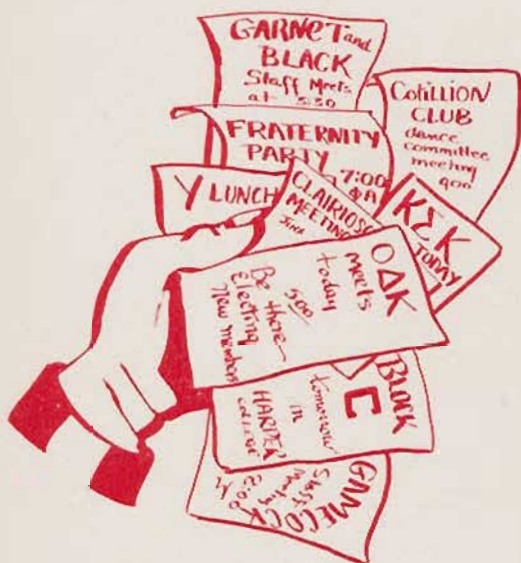 GARNET and
BLACK
Staff Meets
at 5:30
COTILLION
CLUB
dance
committee
meeting
900
FRATERNITY
PARTY
7:00
Y LUNCH
CLAIRIOSO
MEETING
KΣK
TODAY
OΔK
meets
today
500
Be there—
Electing
new members
BLOCK
C
tomorrow
in
HARPER
COLLEGE
GAMECOCK
Staff
Meeting